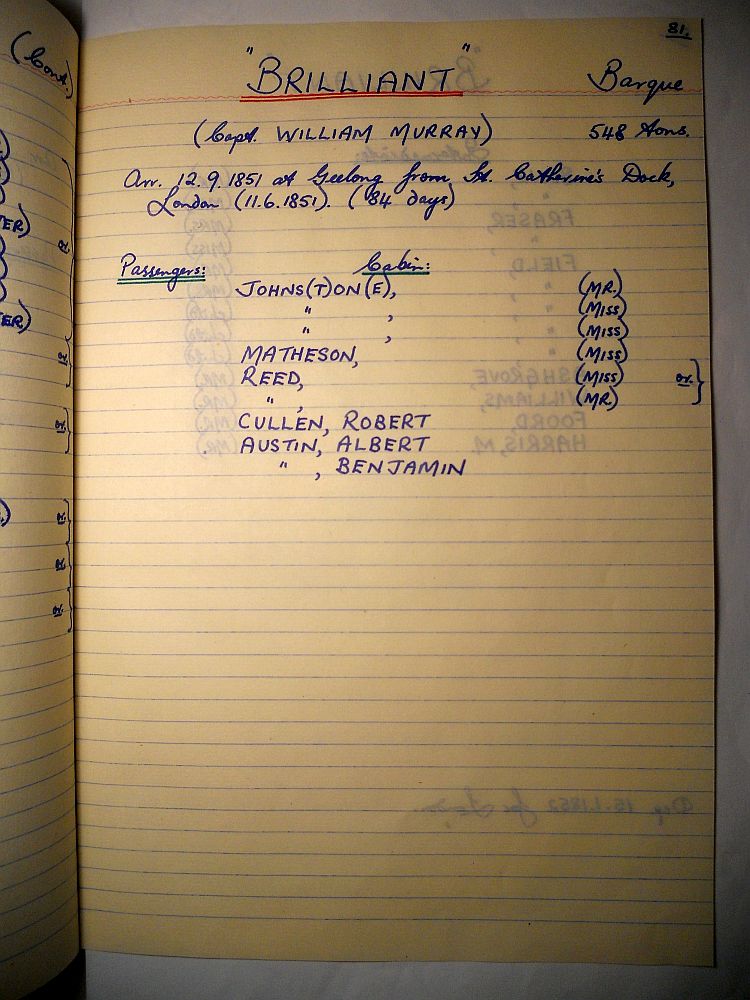 (Cont.)
81.
"BRILLIANT" Barque
(Capt. WILLIAM MURRAY) 548 tons.
Arr. 12.9.1851 at Geelong from St. Catherine's Dock,
London (11.6.1851). (84 days)
Passengers: Cabin:
JOHNS(T)ON(E), (MR.)
" , (MISS)
" , (MISS)
MATHESON, (MISS)
REED, (MISS) or.
" , (MR.)
CULLEN, ROBERT
AUSTIN, ALBERT
" , BENJAMIN
TER)
or.
TER)
or.
or.
or.
or.
or.